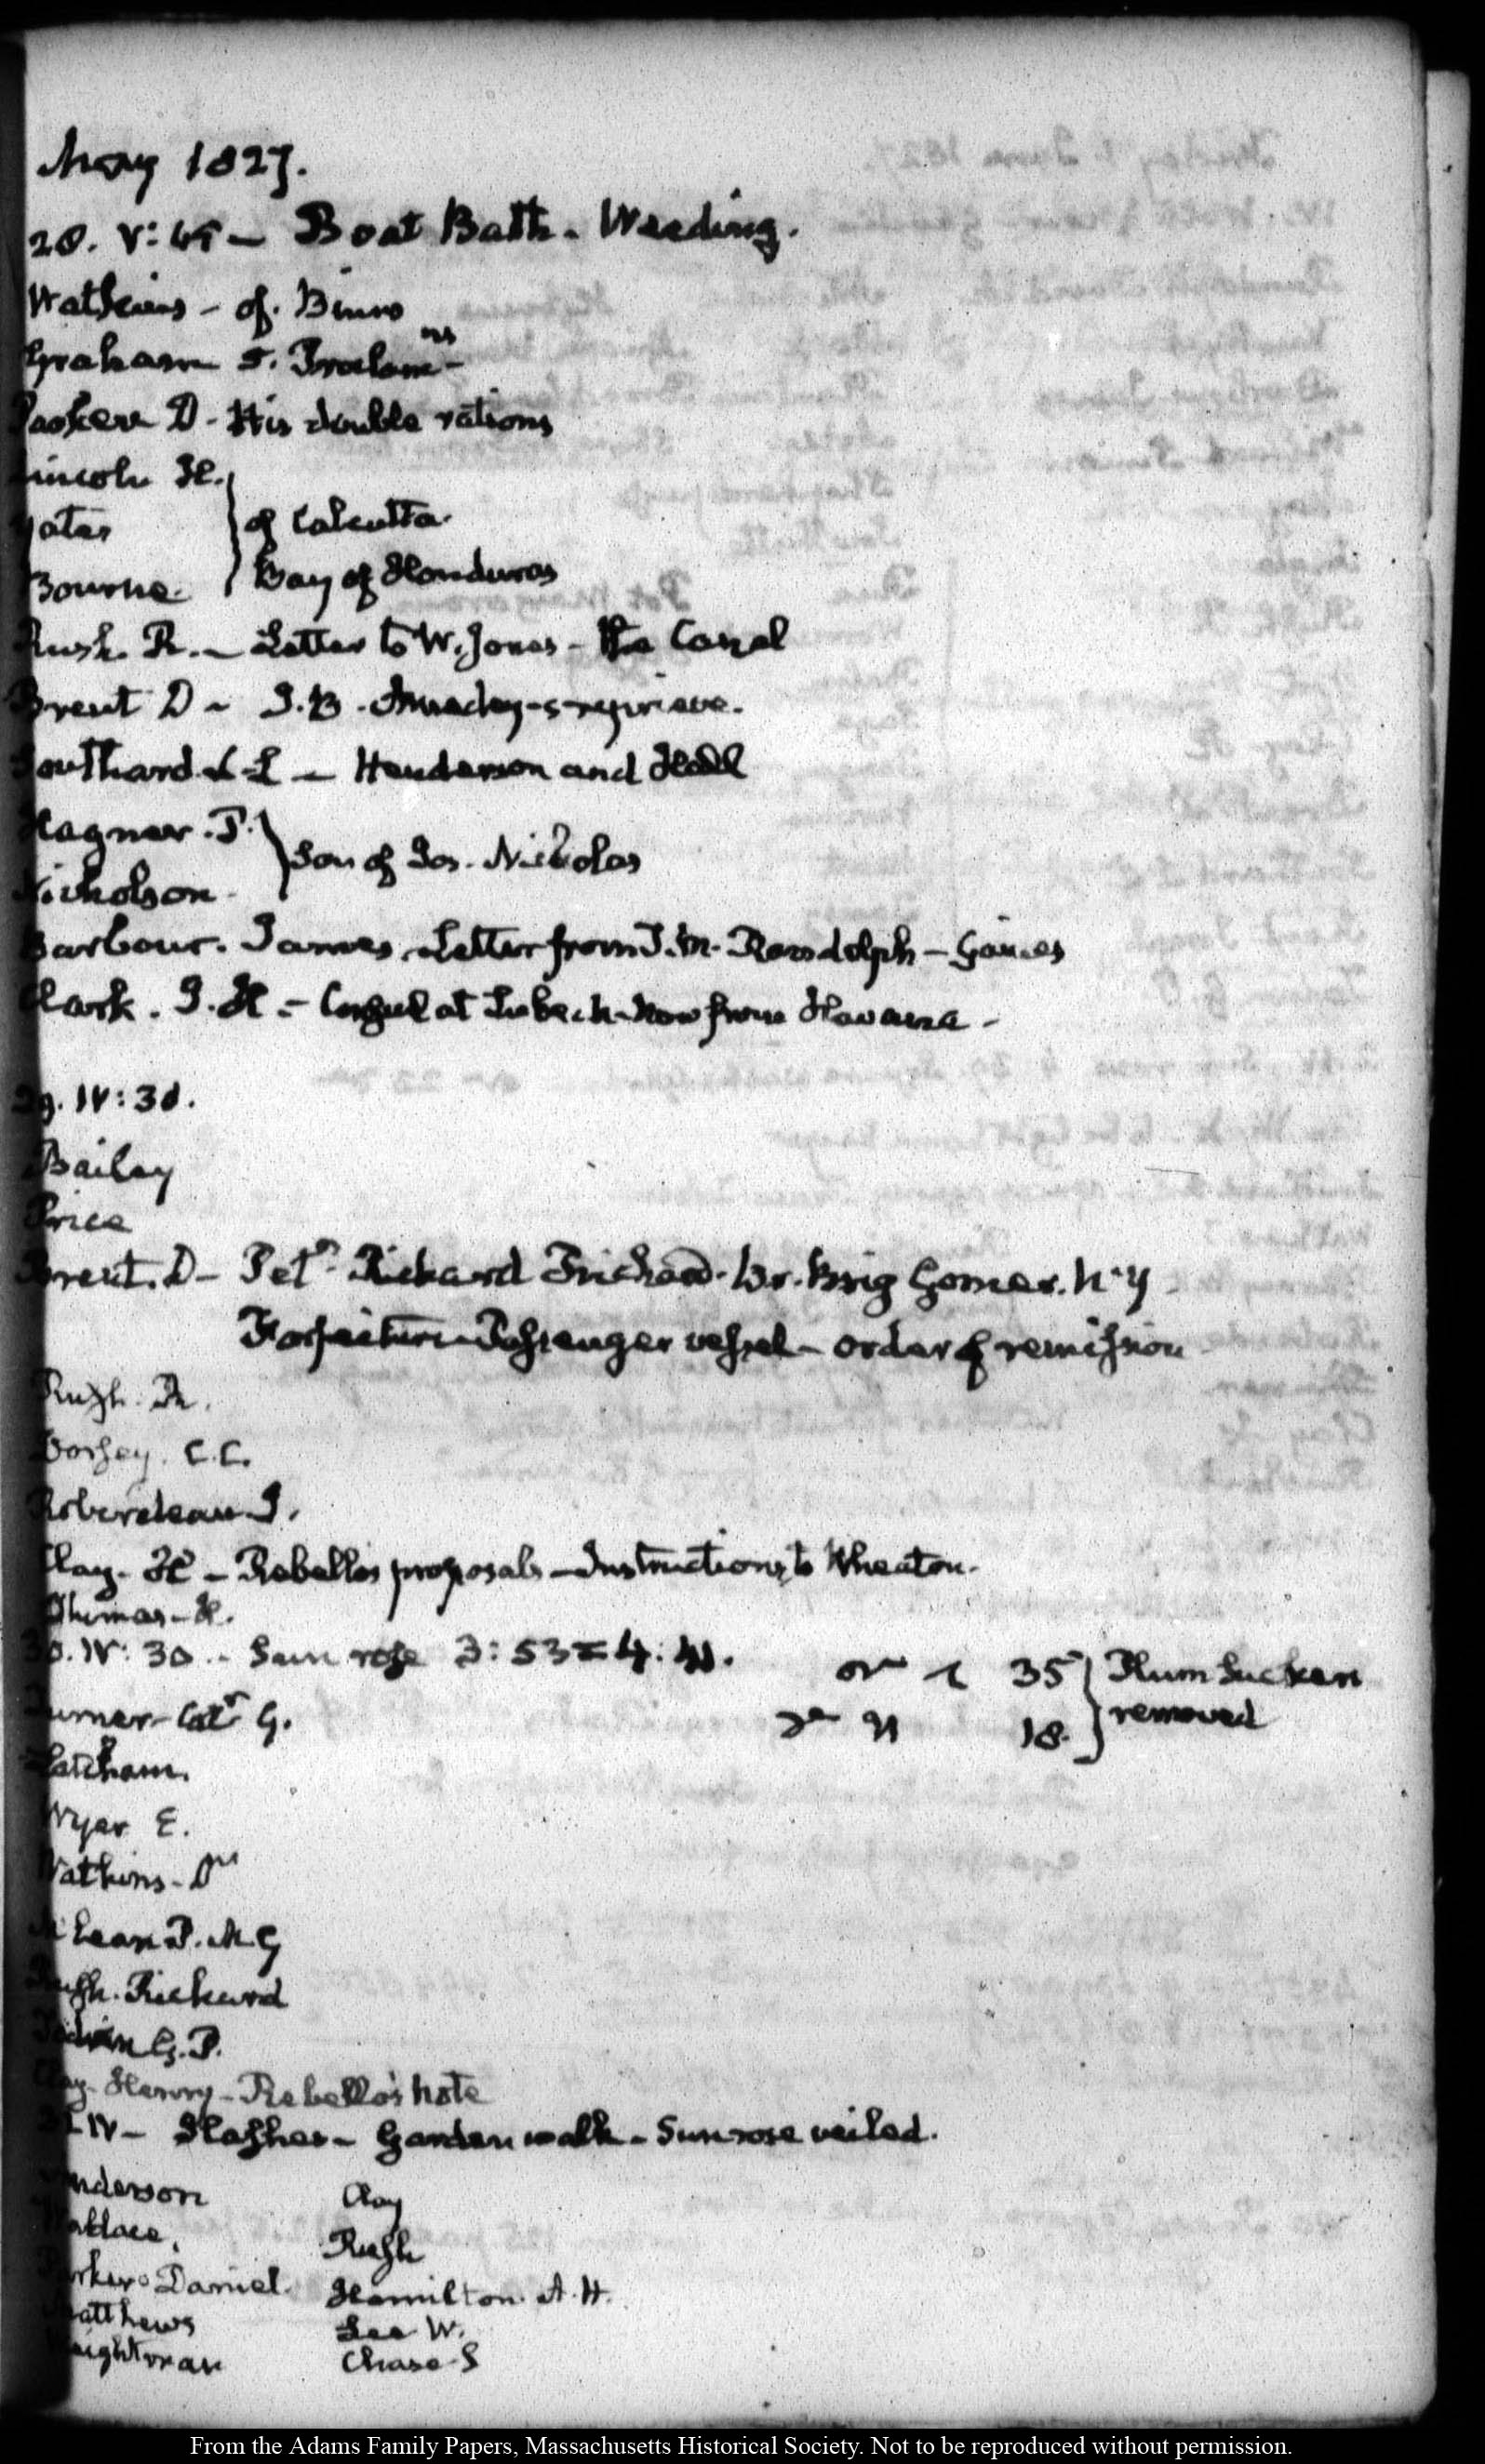 May 1827.
28. V:45 — Boat Bath. Weeding.
Watkins - of. Binns
Graham J. Proclam.ons
Parker D - His double rations
Lincoln H.
Yates of Calcutta.
Bourne. Bay of Honduras
Rush. R. — Letter to W. Jones - the Canal
Brent D — J.B. reprieve.
Southard S. L — Henderson and
Hagner. P.
Son of Jos. Nicholas
Nicholson.
Barbour. James. Letter from T. M. Randolph — Gaines
Clark. J. H - Consul at Lubeck now from Havana -
29. IV:30.
Bailey
Price
Brent. D — Petn. Richard Br. Brig Gomer. N.Y
Forfeiture Passenger vessel - order of remission
Rush. R.
Dorsey. C.C.
Roberdeau I.
Clay. H — Rebello's proposals — Instructions to Wheaton.
Thomas - H.
30. IV:30. - Sun rose 3:53 = 4:
35 Plum Suckers
Turner - G. 18. removed
Wyer E.
Watkins - Dr
McLean P. M. G
Rush. Richard
G. P.
Clay - Henry - Rebello's note
31. IV — Slashes - Garden walk - Sun rose veiled.
Anderson Clay
Wallace. Rush
Parker Daniel. Hamilton. A. H.
Matthews Lee W.
Weightman Chase S
From the Adams Family Papers, Massachusetts Historical Society. Not to be reproduced without permission.